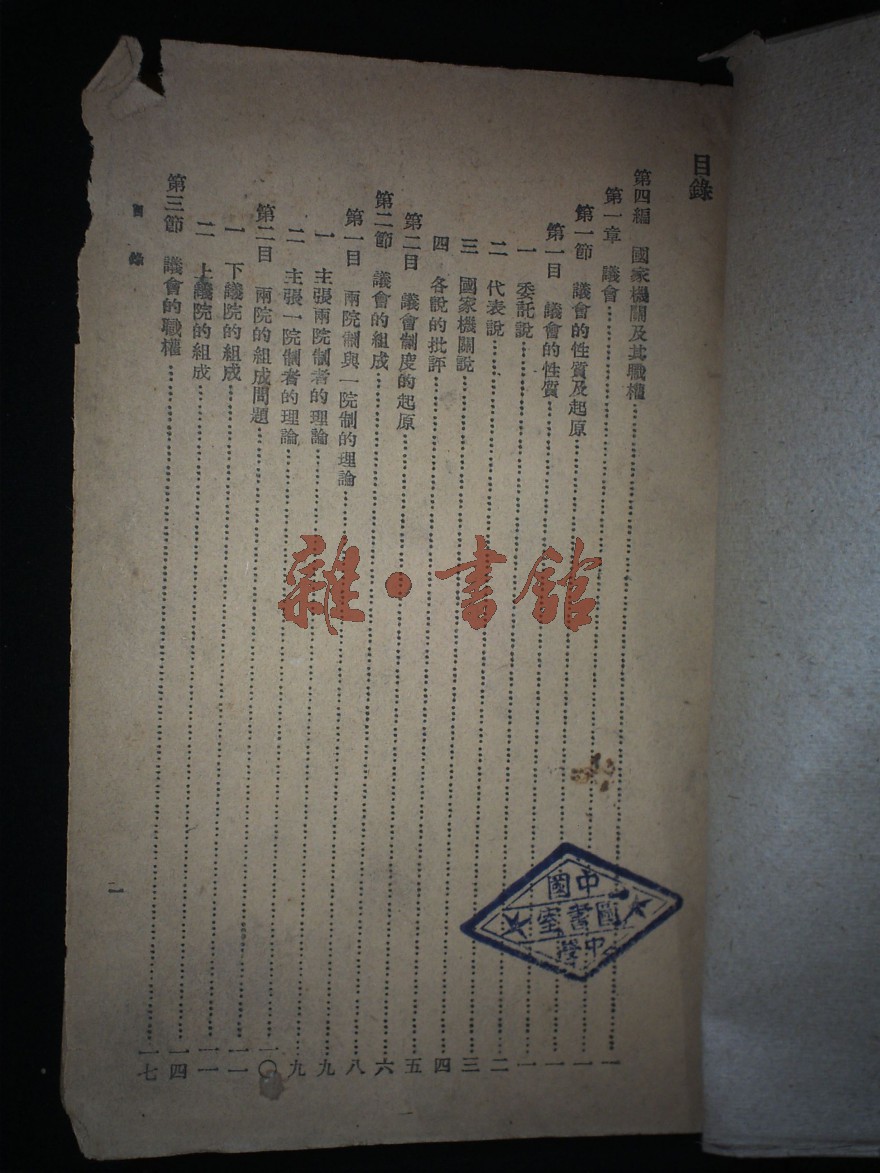 目錄
第四編 國家機關及其職權……一
第一章 議會……一
第一節 議會的性質及起原……一
第一目 議會的性質……一
一 委託說……二
二 代表說……三
三 國家機關說……四
四 各說的批評……五
第二目 議會制度的起原……六
第二節 議會的組成……八
第一目 兩院制與一院制的理論……九
一 主張兩院制者的理論……九
二 主張一院制者的理論……一〇
第二目 兩院的組成問題……一一
一 下議院的組成……一一
二 上議院的組成……一四
第三節 議會的職權……一七
目錄
一
雜·書館
中國
圖書室
中學